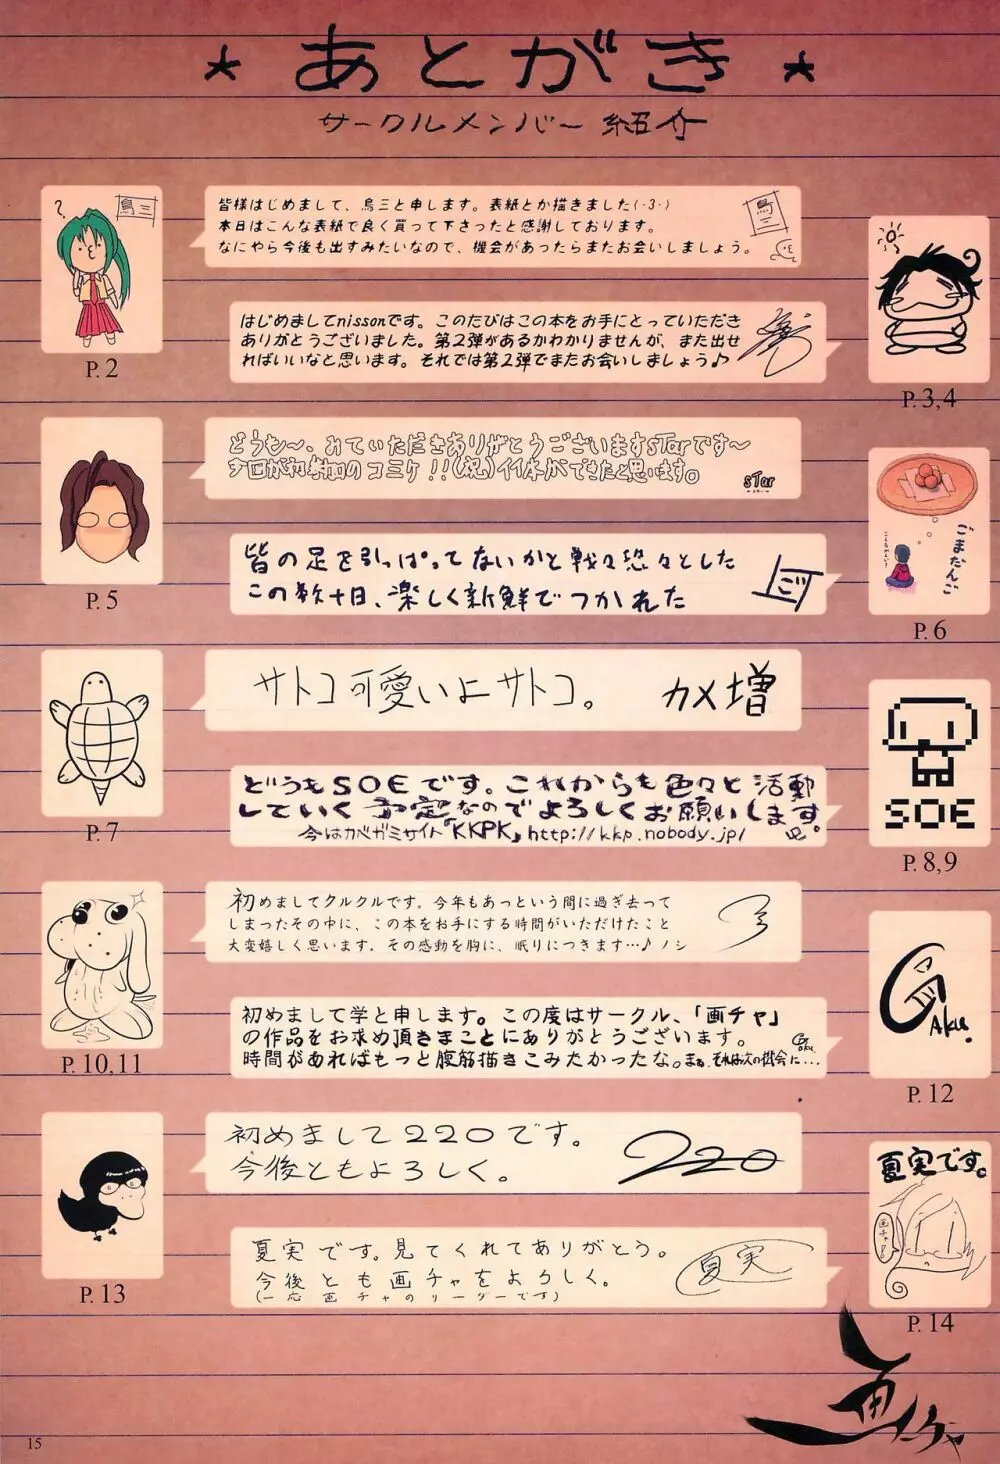 ★ あとがき ★
サークルメンバー 紹介
?
鳥三
P.2
皆様はじめまして、鳥三と申します。表紙とか描きました(-3-)
本日はこんな表紙で良く買って下さったと感謝しております。
なにやら今後も出すみたいなので、機会があったらまたお会いしましょう。
鳥三
はじめましてnissonです。このたびはこの本をお手にとっていただき
ありがとうございました。第2弾があるかわかりませんが、また出せ
ればいいなと思います。それでは第2弾でまたお会いしましょう♪
P.3,4
どうも〜、みていただきありがとうございますsTarです〜
今回が初参加のコミケ!!(祝)イイ本ができたと思います。
sTar
P.5
皆の足を引っぱってないかと戦々恐々とした
この数十日、楽しく新鮮でつかれた
ごまだんご
P.6
サトコ可愛いよサトコ。
カメ増
P.7
どうもSOEです。これからも色々と活動
していく予定なのでよろしくお願いします。
今はカベガミサイト「KKPK」http://kkp.nobody.jp/
SOE
P.8,9
初めましてクルクルです。今年もあっという間に過ぎ去って
しまったその中に、この本をお手にする時間がいただけたこと
大変嬉しく思います。その感動を胸に、眠りにつきます…♪ノシ
P.10,11
初めまして学と申します。この度はサークル、「画チャ」
の作品をお求め頂きまことにありがとうございます。
時間があればもっと腹筋描きこみたかったな。まぁ、それは次の機会に…
Gaku
GAku.
P.12
初めまして220です。
今後ともよろしく。
220
P.13
夏実です。見てくれてありがとう。
今後とも画チャをよろしく。
(一応画チャのリーダーです)
夏実
夏実です。
P.14
画チャ
15